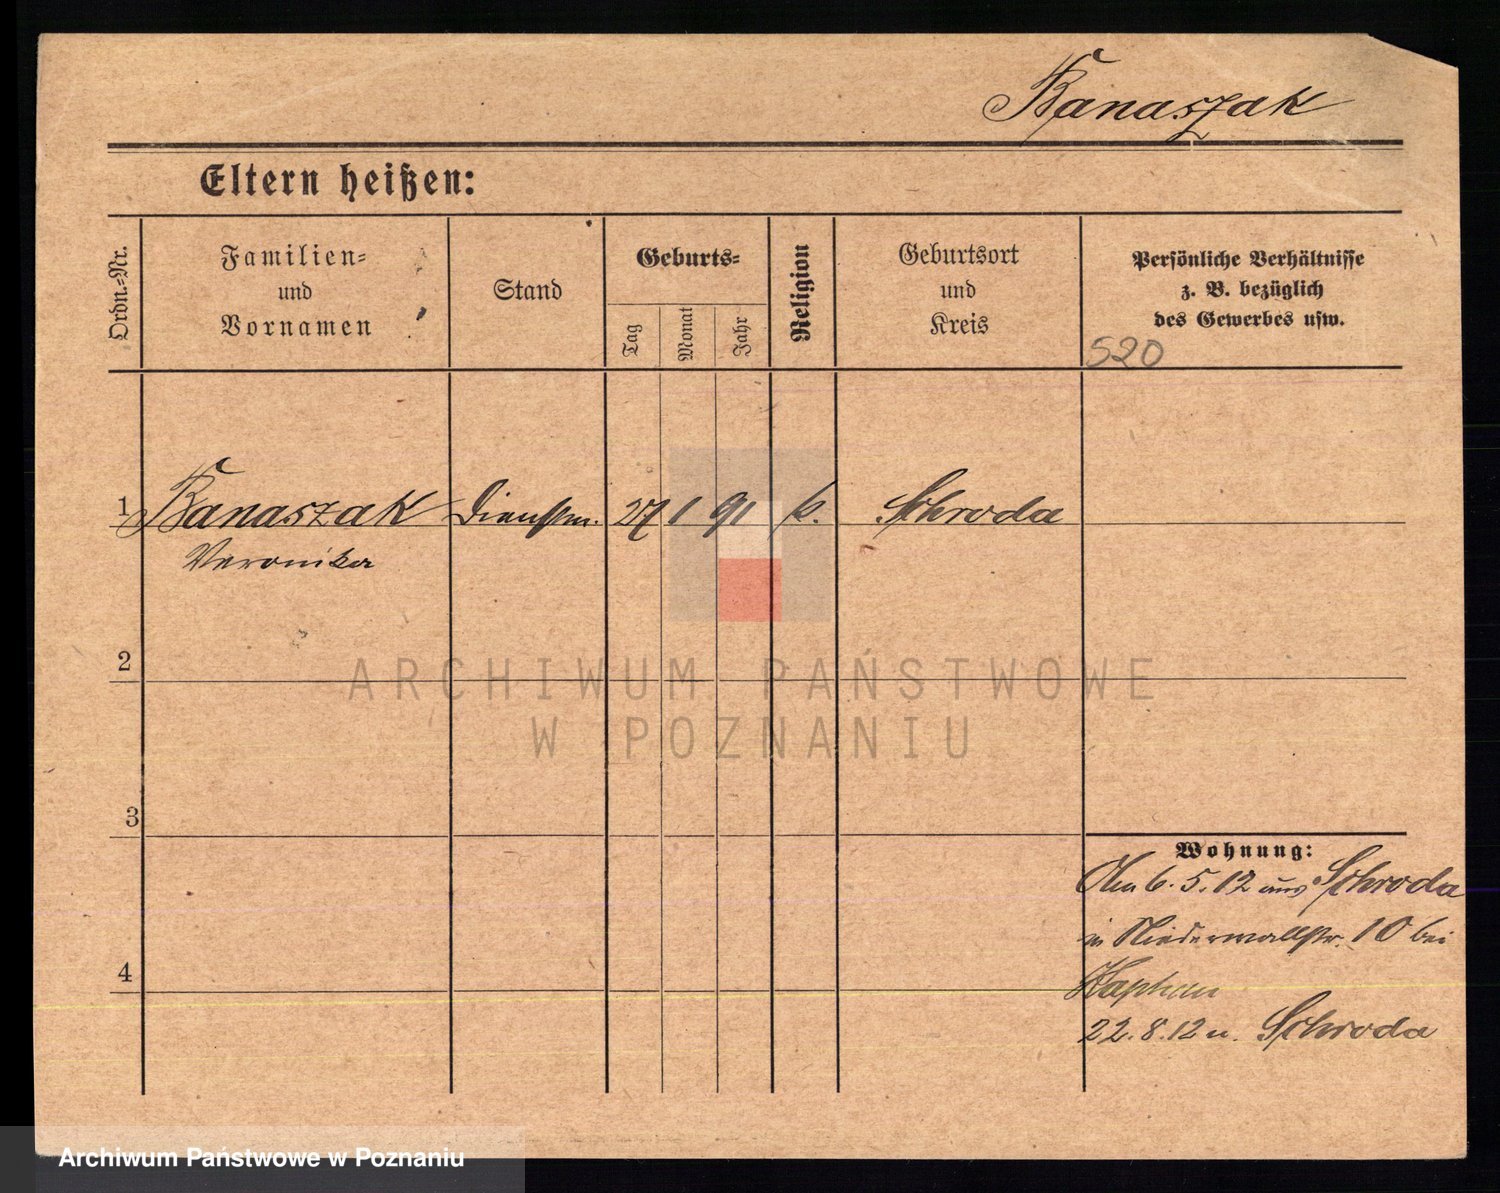 Banaszak
Eltern heißen:
Ordn.-Nr.
Familien-
und
Vornamen
Stand
Geburts-
Tag
Monat
Jahr
Religion
Geburtsort
und
Kreis
Persönliche Verhältnisse
z. B. bezüglich
des Gewerbes usw.
520
1 Banaszak Dienstm. 27 1 91 k. Schroda
Veronika
2
3
4
Wohnung:
Am 6.5.12 aus Schroda
in Niederwallstr. 10 bei
Kaphan
22.8.12 n. Schroda
ARCHIWUM PAŃSTWOWE
W POZNANIU
Archiwum Państwowe w Poznaniu